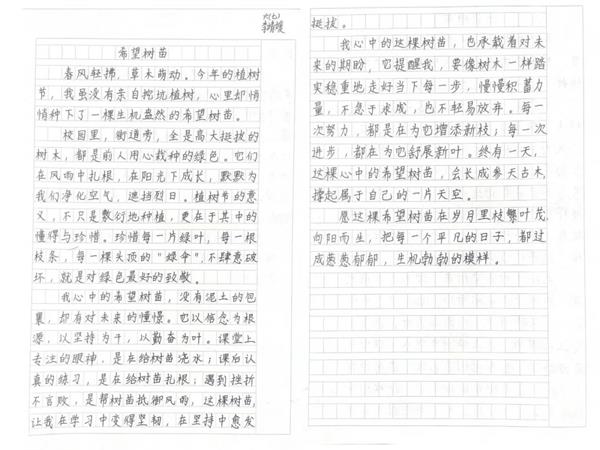 六(七)
李靖媛
希望树苗
春风轻拂，草木萌动。今年的植树
节，我虽没有亲自挖坑植树，心里却悄
悄种下了一棵生机盎然的希望树苗。
校园里，街道旁，全是高大挺拔的
树木，都是前人用心栽种的绿色。它们
在风雨中扎根，在阳光下成长，默默为
我们净化空气，遮挡烈日。植树节的意
义，不只是敷衍地种植，更在于其中的
懂得与珍惜。珍惜每一片绿叶，每一根
枝条，每一棵头顶的"绿伞"，不肆意破
坏，就是对绿色最好的致敬。
我心中的希望树苗，没有泥土的包
裹，却有对未来的憧憬。它以信念为根
源，以坚持为干，以勤奋为叶。课堂上
专注的眼神，是在给树苗浇水；课后认
真的练习，是在给树苗扎根；遇到挫折
不言败，是帮树苗抵御风雨，这棵树苗，
让我在学习中变得坚韧，在坚持中愈发
挺拔。
我心中的这棵树苗，也承载着对未
来的期盼，它提醒我，要像树木一样踏
实稳重地走好当下每一步，慢慢积蓄力
量，不急于求成，也不轻易放弃。每一
次努力，都是在为它增添新枝；每一次
进步，都在为它舒展新叶。终有一天，
这棵心中的希望树苗，会长成参天古木，
撑起属于自己的一片天空。
愿这棵希望树苗在岁月里枝繁叶茂，
向阳而生，把每一个平凡的日子，都过
成葱葱郁郁，生机勃勃的模样。